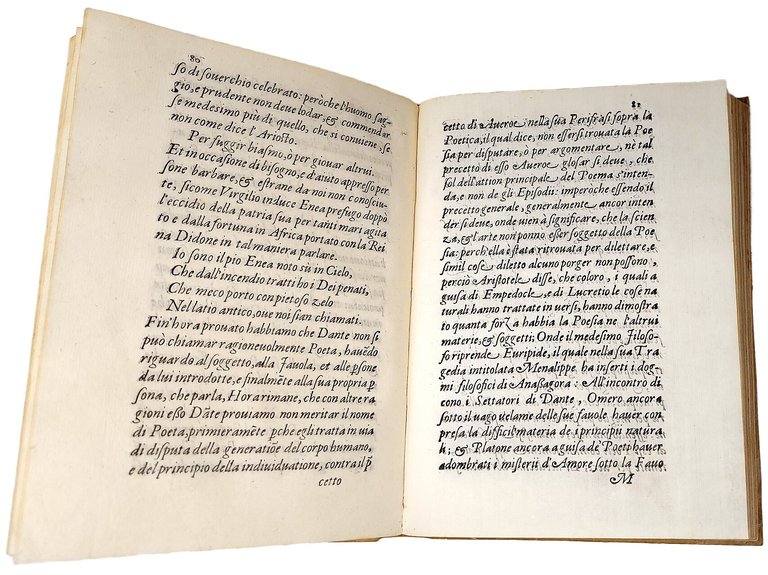 80
so di souerchio celebrato: peròche l'huomo sag-
gio, e prudente non deue lodar, & commendar
se medesimo più di quello, che si conuiene, se
non come dice l'Ariosto.
Per fuggir biasmo, ò per giouar altrui.
Et in occasione di bisogno, e d'aiuto appresso per
sone barbare, & estrane da noi non conosciu-
te, sicome Virgilio induce Enea prefugo doppò
l'eccidio della patria sua per tanti mari agita
to e dalla fortuna in Africa portato con la Rei
na Didone in tal maniera parlare.
Io sono il pio Enea noto sù in Cielo,
Che dall'incendio tratti ho i Dei penati,
Che meco porto con pietoso zelo
Nel latio antico, oue noi sian chiamati.
Fin'hora prouato habbiamo che Dante non si
può chiamar ragioneuolmente Poeta, hauẽdo
riguardo al soggetto, alla Fauola, et alle ꝑsone
da lui introdotte, e finalmẽte alla sua propria ꝑ
sona, che parla, Hora rimane, che con altre ra
gioni esso Dãte prouiamo non meritar il nome
di Poeta, primieramẽte ꝑche egli tratta in uia
di disputa della generatiõe del corpo humano,
e del principio della indiuiduatione, contra il p̃
cetto
81
cetto di Aueroe nella sua Perifrasi sopra la
Poetica, il qual dice, non essersi trouata la Poe
sia per disputare, ò per argomentare, nè tal
precetto di esso Aueroe glosar si deue, che
sol dell'attion principale del Poema s'inten-
da, e non de gli Episodii: imperòche essendo il
precetto generale, generalmente ancor inten
der si deue, onde uien à significare, che la scien
za, & l'arte non ponno esser soggetto della Poe
sia: perch'ella è stata ritrouata per dilettare, e
simil cose diletto alcuno porger non possono,
perciò Aristotele disse, che coloro, i quali a
guisa di Empedocle, e di Lucretio le cose na-
turali hanno trattate in uersi, hanno dimostra
to quanta forza habbia la Poesia ne l'altrui
materie, & soggetti: Onde il medesimo Filoso-
fo riprende Euripide, il quale nella sua Tra
gedia intitolata Menalippe ha inserti i dog-
mi filosofici di Anassagora: All'incontro di
cono i Settatori di Dante, Omero ancora
sotto il uago uelame delle sue fauole hauer com
presa la difficil materia de i principii natura
li; & Platone ancora a guisa de' Poeti hauer
adombrati i misterii d'Amore sotto la Fauo
M